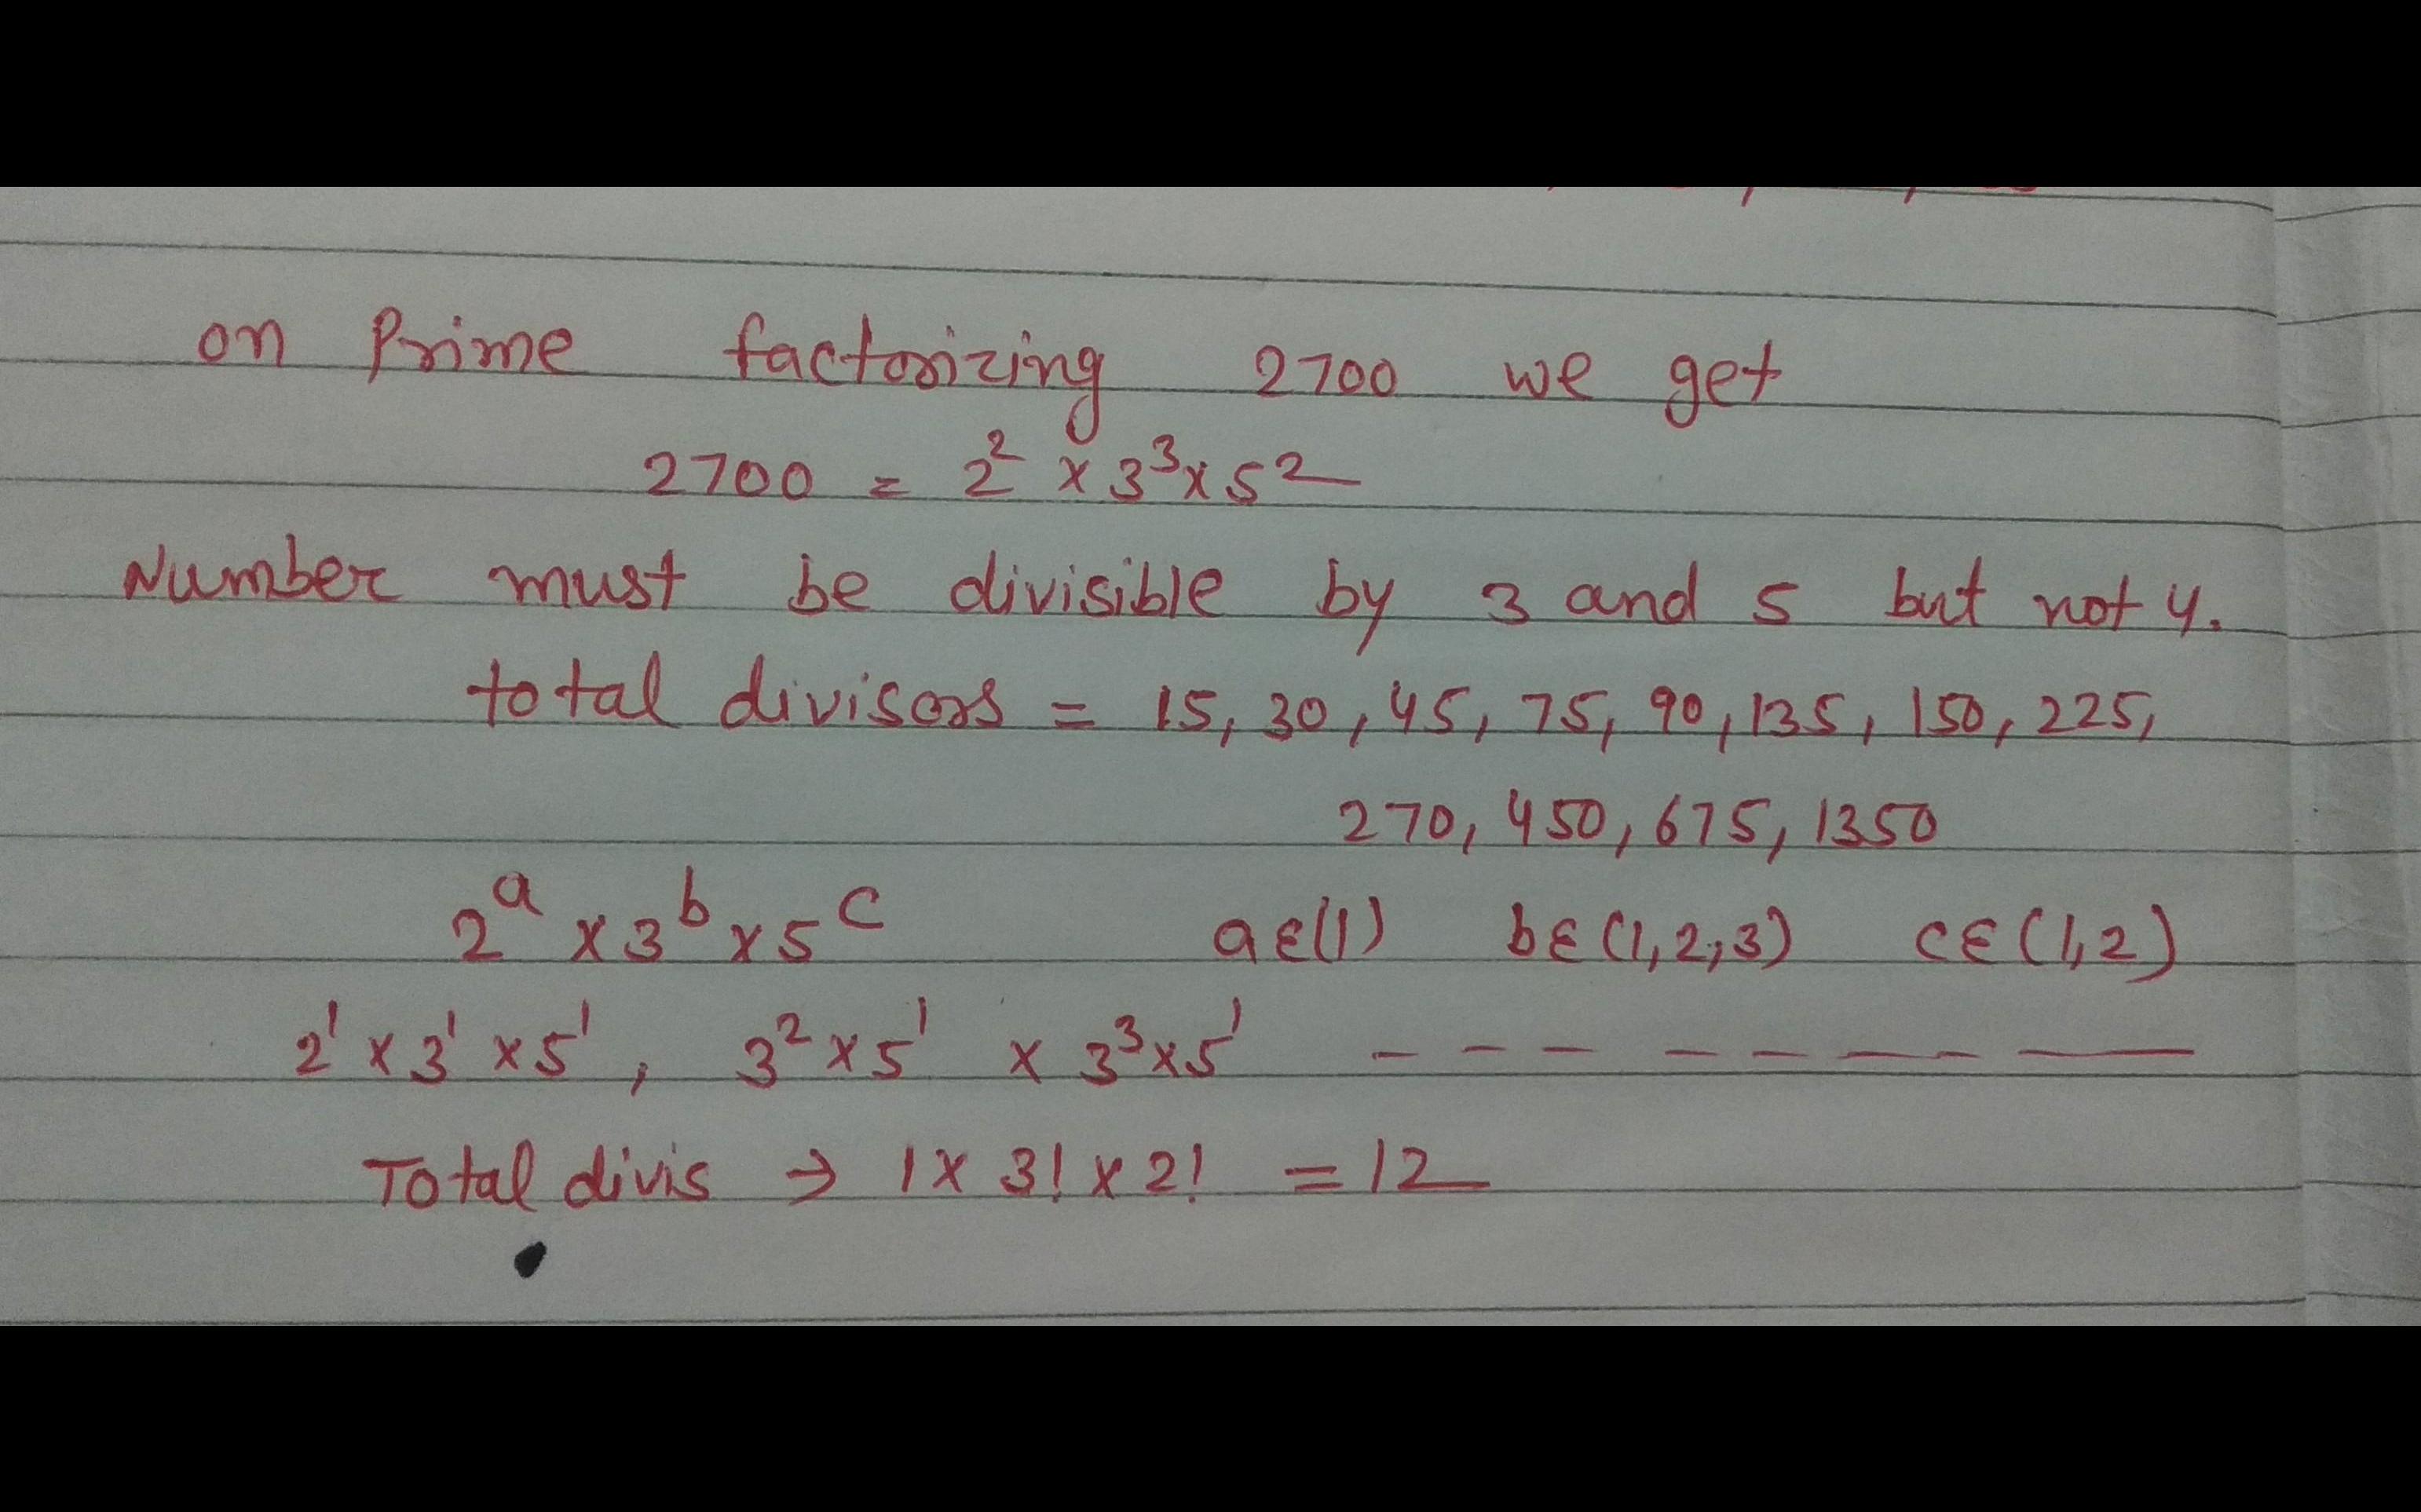 on Prime factorizing 2700 we get
2700 = 2² × 3³ × 5²
Number must be divisible by 3 and 5 but not 4.
total divisors = 15, 30, 45, 75, 90, 135, 150, 225,
270, 450, 675, 1350
2ᵃ × 3ᵇ × 5ᶜ a∈(1) b∈(1,2,3) c∈(1,2)
2¹ × 3¹ × 5¹, 3² × 5¹ × 3³ × 5¹ - - - - - - - -
Total divis → 1 × 3! × 2! = 12